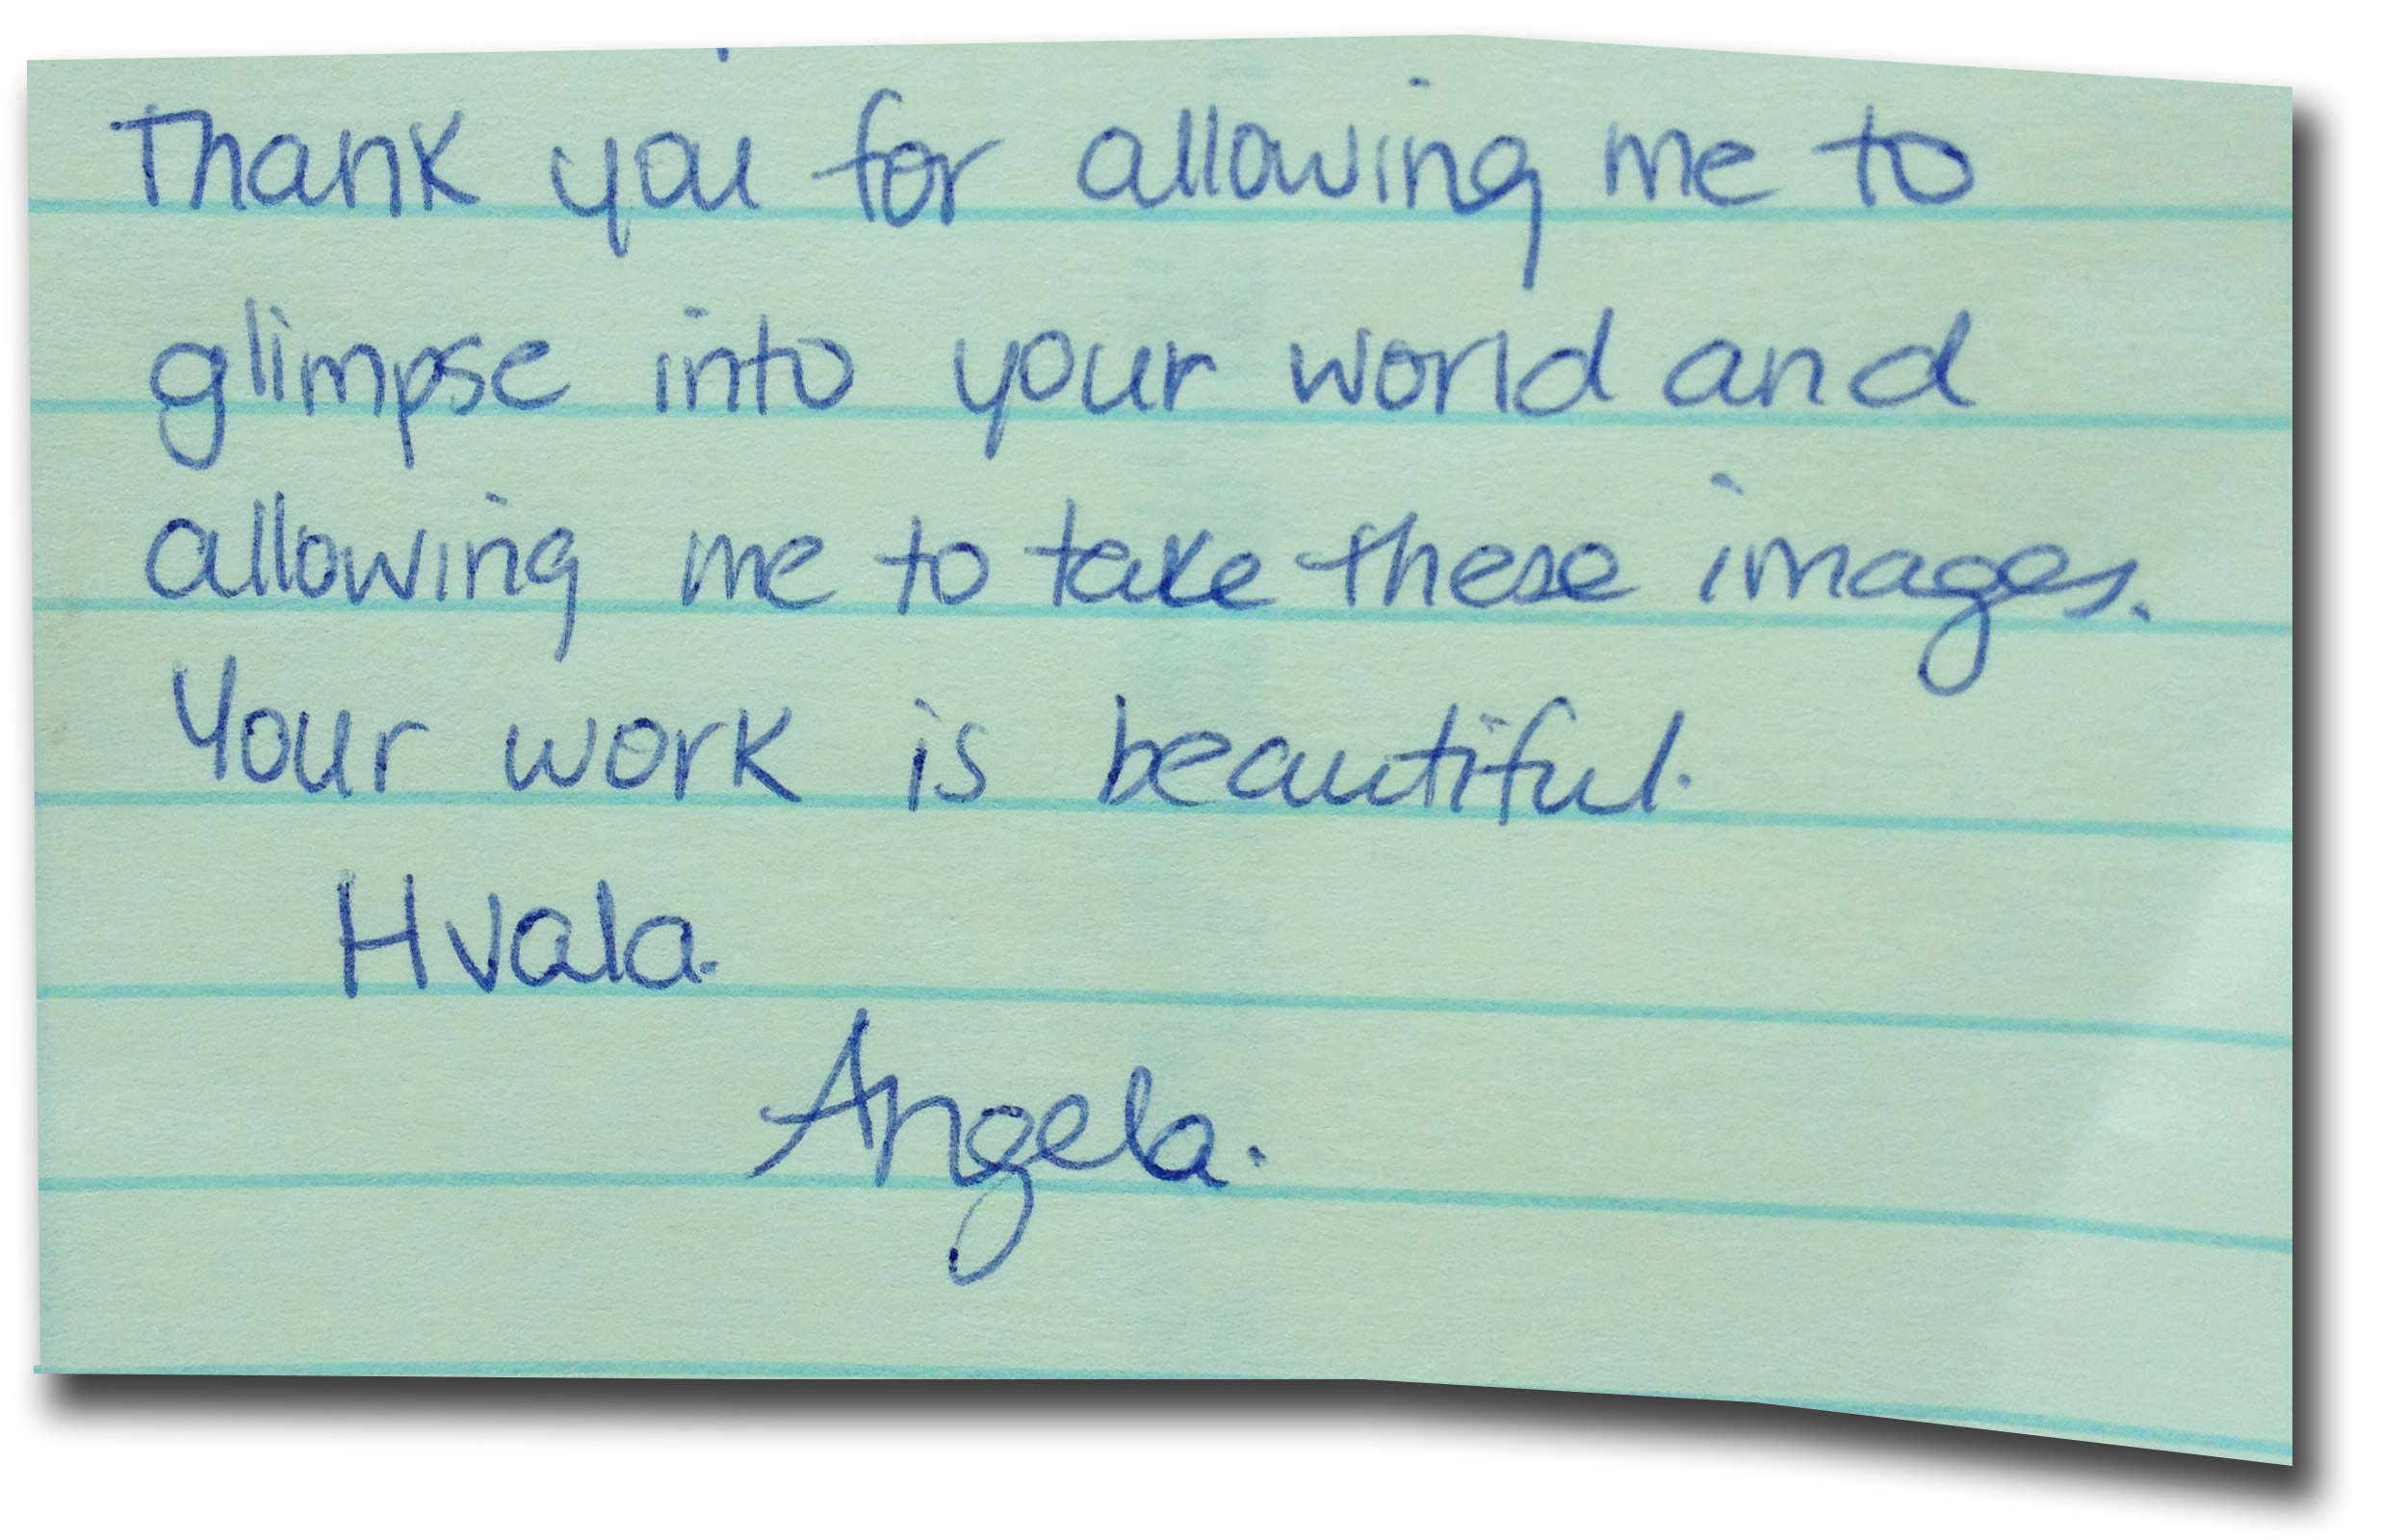 Thank you for allowing me to
glimpse into your world and
allowing me to take these images.
Your work is beautiful.
Hvala.
Angela.